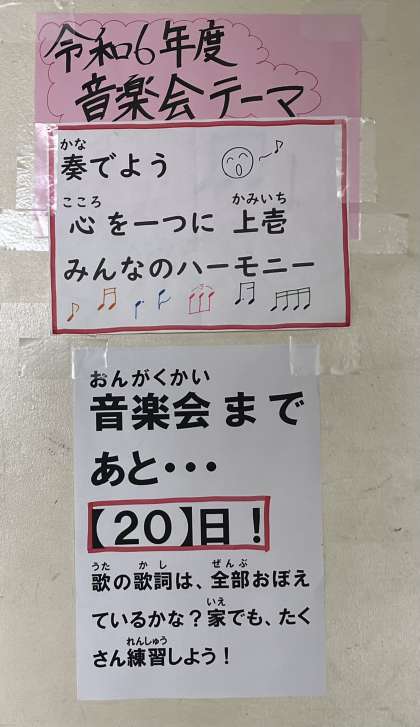 令和6年度
音楽会テーマ
かな
奏でよう
こころ かみいち
心を一つに 上壱
みんなのハーモニー
おんがくかい
音楽会まで
あと・・・
【20】日！
うた かし ぜんぶ
歌の歌詞は、全部おぼえ
いえ
ているかな？家でも、たく
れんしゅう
さん練習しよう！